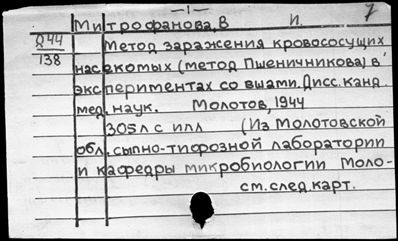 — 1 —
Митрофанова, В И. 7
844
138
Метод заражения кровососущих
насекомых (метод Пшеничникова) в
экспериментах со вшами. Дисс. канд.
мед. наук. Молотов, 1944
305 л с илл (Из Молотовской
обл. сыпно-тифозной лаборатории
и кафедры микробиологии Моло-
см. след. карт.